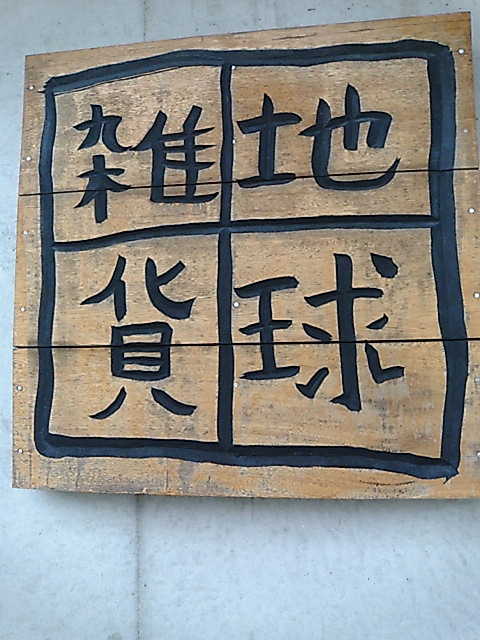 地球
雑貨